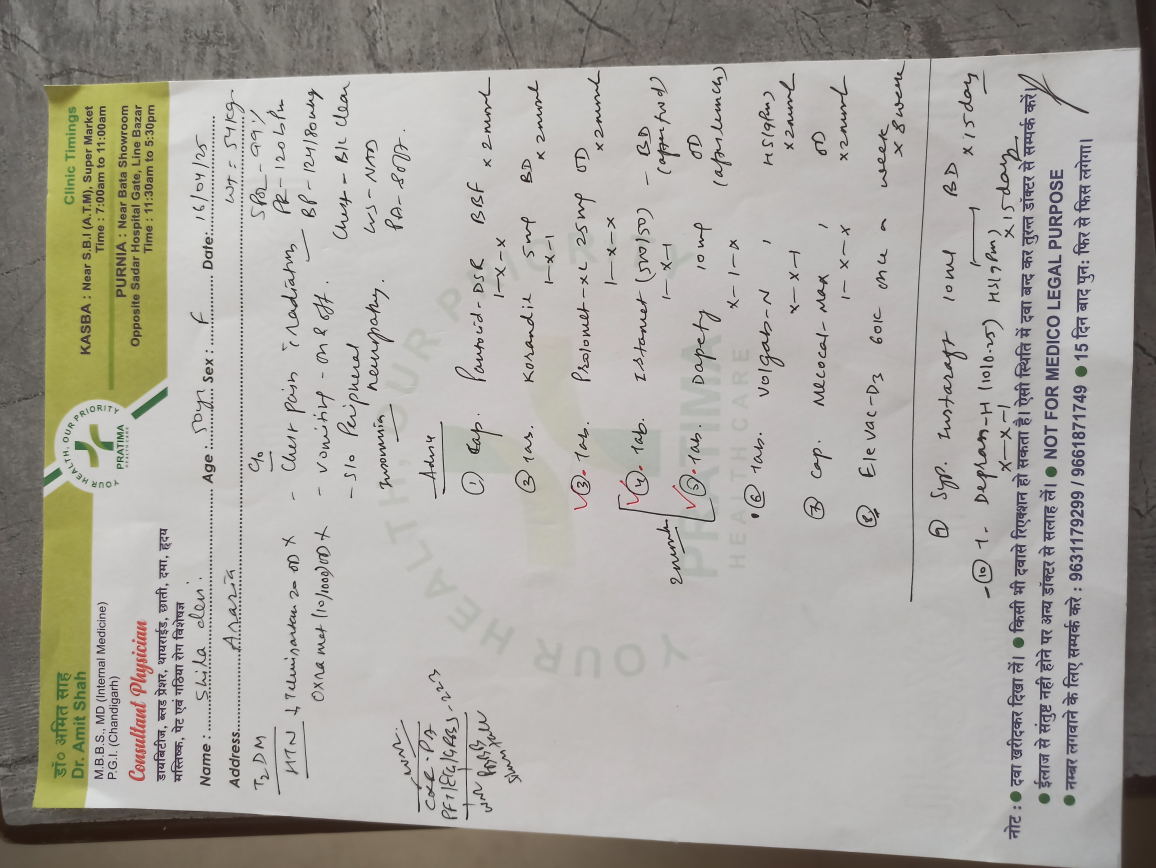 डॉ० अमित साह
Dr. Amit Shah
M.B.B.S., MD (Internal Medicine)
P.G.I. (Chandigarh)
Consultant Physician
डायबिटीज, ब्लड प्रेशर, थायराईड, छाती, दमा, हृदय
मस्तिष्क, पेट एवं गठिया रोग विशेषज्ञ
YOUR HEALTH, OUR PRIORITY
PRATIMA
HEALTH CARE
Clinic Timings
KASBA : Near S.B.I (A.T.M), Super Market
Time : 7:00am to 11:00am
PURNIA : Near Bata Showroom
Opposite Sadar Hospital Gate, Line Bazar
Time : 11:30am to 5:30pm
Name : Shila devi Age : 50yr Sex : F Date: 16/04/25
Address. Araria
WT = 54kg
SPO2 - 99%
PR - 120 bpm
BP - 124/80mmHg
Chest - B/L Clear
CVS - NAD
PA - Soft
T2DM
HTN
Telmisartan 20 OD X
Oxramet (10/1000) OD X
C/o
- Chest pain radiation
- vomiting - on & off.
- S/o Peripheral neuropathy.
Insomnia
Adv
① Cap. Pantocid-DSR BBF x 2 month
1-x-x
② Tab. Korandil 5mg BD x 2 month
1-x-1
③ Tab. Prolomet-XL 25mg OD x 2 month
1-x-x
④ Tab. Istamet (500/50) - BD
1-x-1 (after food)
⑤ Tab. Dapety 10mg OD
x-1-x (after lunch)
2 month
⑥ Tab. Volgab-N 1 HS (9pm)
x-x-1 x 2 month
⑦ Cap. Mecocal-Max 1 OD
1-x-x x 2 month
⑧ Elevac-D3 60K once a week
x 8 week
⑨ Syp. Instaraft 10ml BD x 15 day
⑩ T. Depran-H (10/0.25) HS (9pm)
x-x-1 x 15 day
YOUR HEALTH, OUR PRIORITY
PRATIMA
HEALTH CARE
नोट : ● दवा खरीदकर दिखा लें। ● किसी भी दवासे रिएक्शन हो सकता है। ऐसी स्थिति में दवा बन्द कर तुरन्त डॉक्टर से सम्पर्क करें।
● ईलाज से संतुष्ट नही होने पर अन्य डॉक्टर से सलाह लें। ● NOT FOR MEDICO LEGAL PURPOSE
● नम्बर लगवाने के लिए सम्पर्क करे : 9631179299 / 9661871749 ● 15 दिन बाद पुनः फिर से फिस लगेगा।